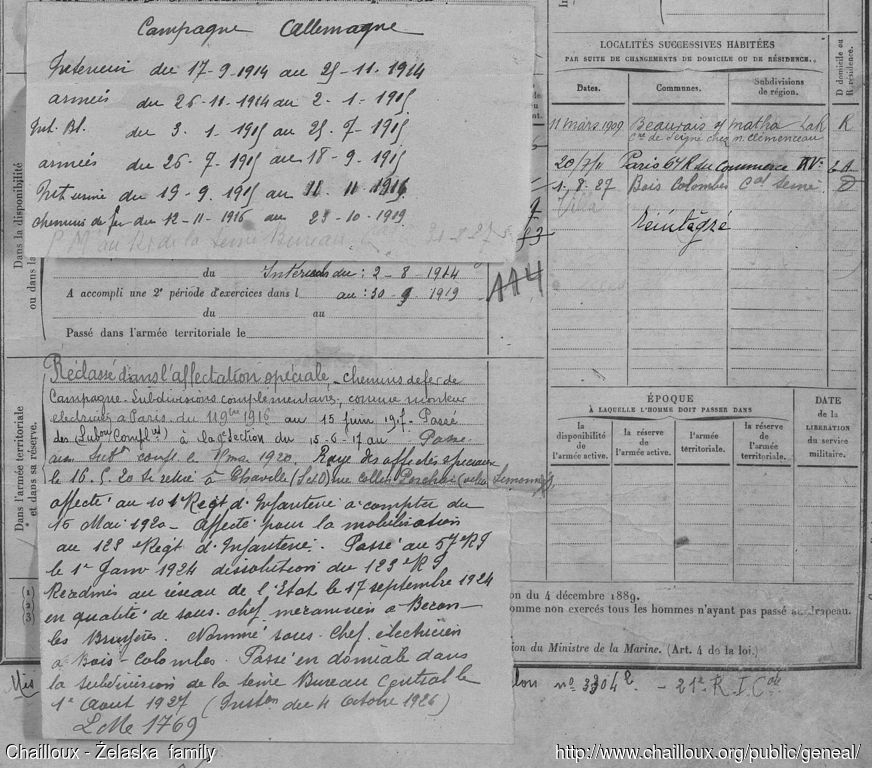 Campagne Allemagne
Intérieur du 17-9-1914 au 25-11-1914
armées du 26-11-1914 au 2-1-1915
Int. Bl. du 3-1-1915 au 25-7-1915
armées du 26-7-1915 au 18-9-1915
Int du 19-9-1915 au 11-11-1916
chemins de fer du 12-11-1916 au 23-10-1919
de la Seine Bureau
Dans la disponibilité
ou dans la
du Intérieur du : 2-8-1914
A accompli une 2e période d'exercices dans l au : 30-9 1919
du au
Passé dans l'armée territoriale le
114
Dans l'armée territoriale
et dans sa réserve.
Réclassé dans l'affectation spéciale, chemins de fer de
Campagne. Subdivisions complémentaires, comme monteur
électricien à Paris. du 11 9bre 1916 au 15 juin 1917- Passé
des (Subon Complres) à la Section du 15-6-17 au Passé
aux Subt compl le 1920. Rayé des affectés spéciaux
le 16.5.20 se retire à Chaville (S&O) rue
affecté au 101e Regt d'Infanterie à compter du
16 Mai 1920 - Affecté pour la mobilisation
au 123e Regt d'Infanterie. Passé au 57e RI
le 1er Janv 1924 dissolution du 123e RI
Réadmis au réseau de l'Etat le 17 septembre 1924
en qualité de sous-chef mécanicien à Becon-
les Bruyères. Nommé sous-chef électricien
à Bois-Colombes. Passé en domicile dans
la subdivision de la Seine Bureau Central le
1er Aout 1927 (Inston du 4 Octobre 1926)
1769
LOCALITÉS SUCCESSIVES HABITÉES
PAR SUITE DE CHANGEMENTS DE DOMICILE OU DE RÉSIDENCE.
Dates. Communes. Subdivisions de région. D domicile ou R résidence.
11 mars 1909 Beauvais s/ Matha R
chez M. Clémenceau
20/7/11 Paris 64 R du Commerce XVe
1.8.27 Bois Colombes Cal Seine D
Réintégré
ÉPOQUE
À LAQUELLE L'HOMME DOIT PASSER DANS
la disponibilité de l'armée active. la réserve de l'armée active. l'armée territoriale. la réserve de l'armée territoriale.
DATE de la LIBÉRATION du service militaire.
(1)
(2)
(3)
on du 4 décembre 1889.
omme non exercés tous les hommes n'ayant pas passé au drapeau.
ion du Ministre de la Marine. (Art. 4 de la loi.)
no 3304 - 21e R.I.Cole
Chailloux - Želaska family
http://www.chailloux.org/public/geneal/